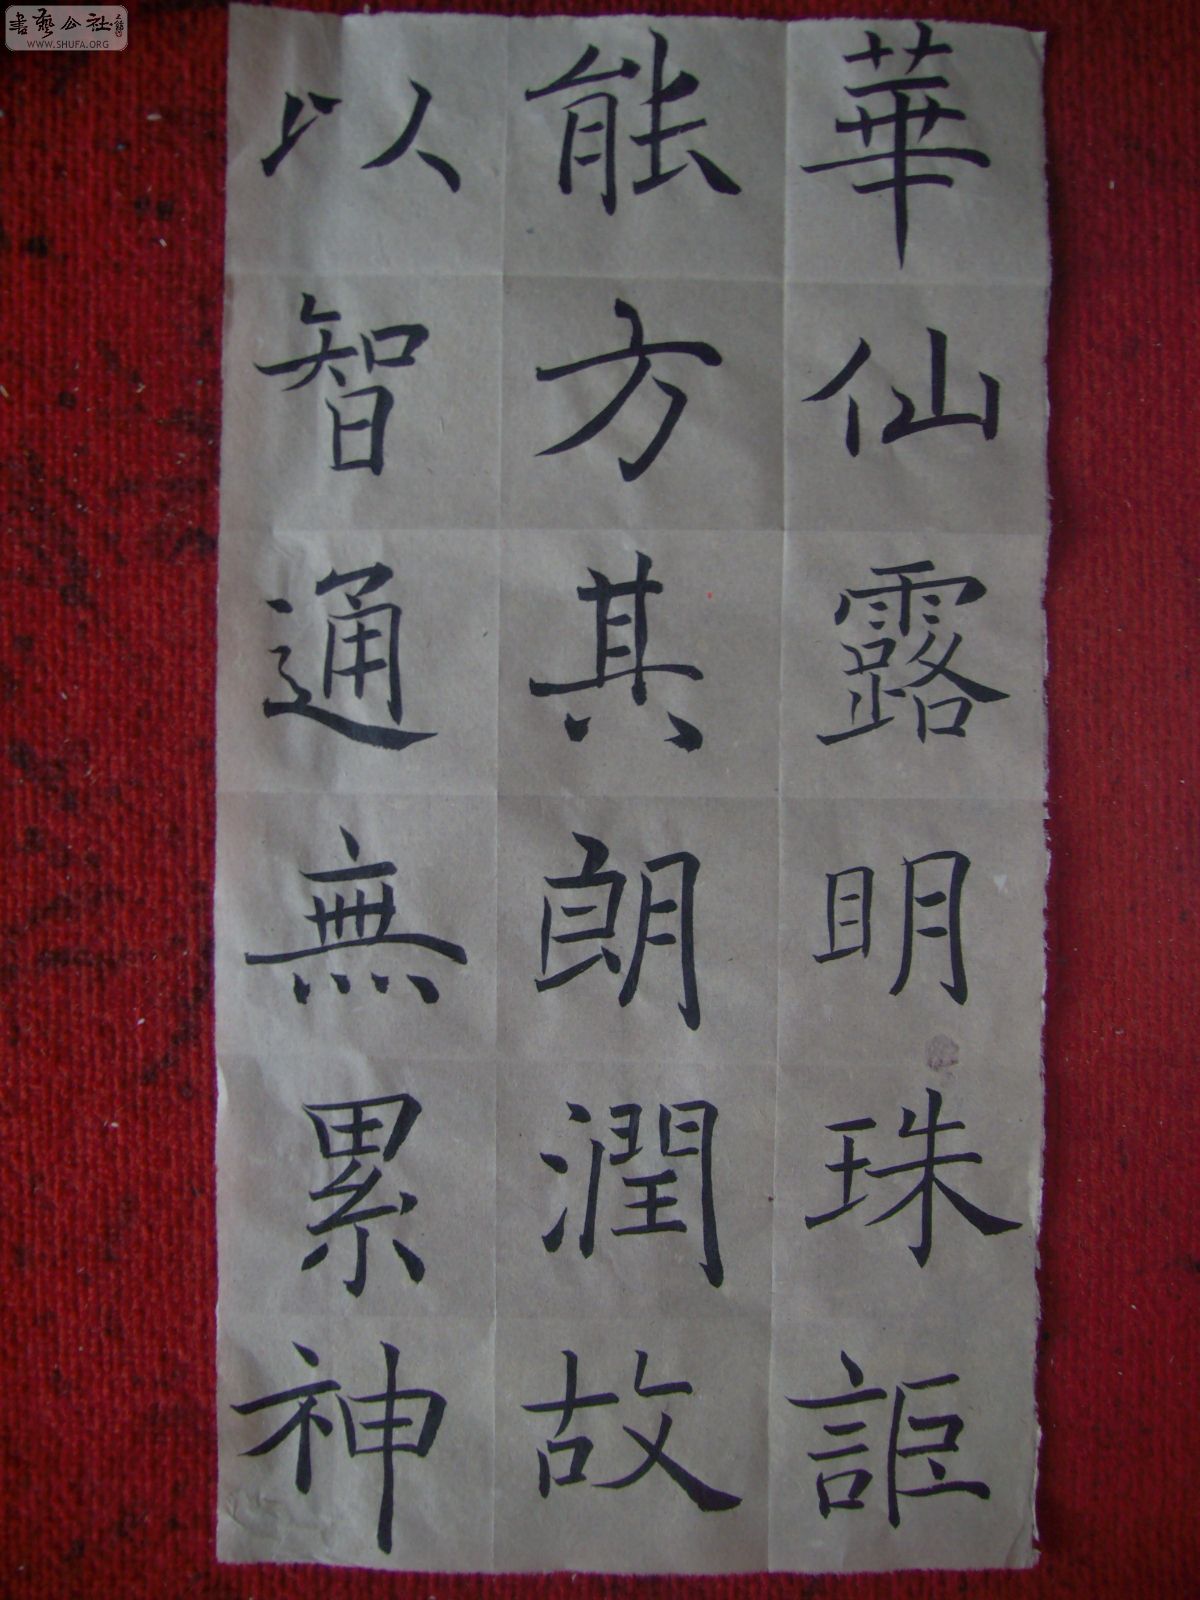 華仙露明珠詎
能方其朗潤故
以智通無累神
書藝公社
WWW.SHUFA.ORG